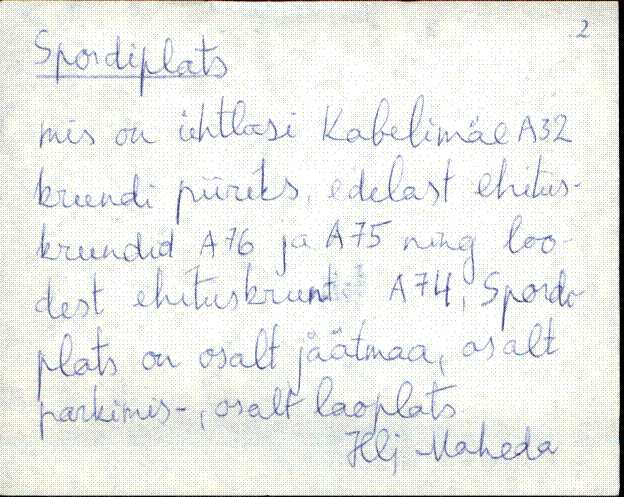 2
Spordiplats
mis on ühtlasi Kabelimäe A32
krundi piiriks, edelast ehitus-
krundid A76 ja A75 ning loo-
dest ehituskrunt A74, Spordi-
plats on osalt jäätmaa, osalt
parkimis-, osalt laoplats
Hlj Maheda